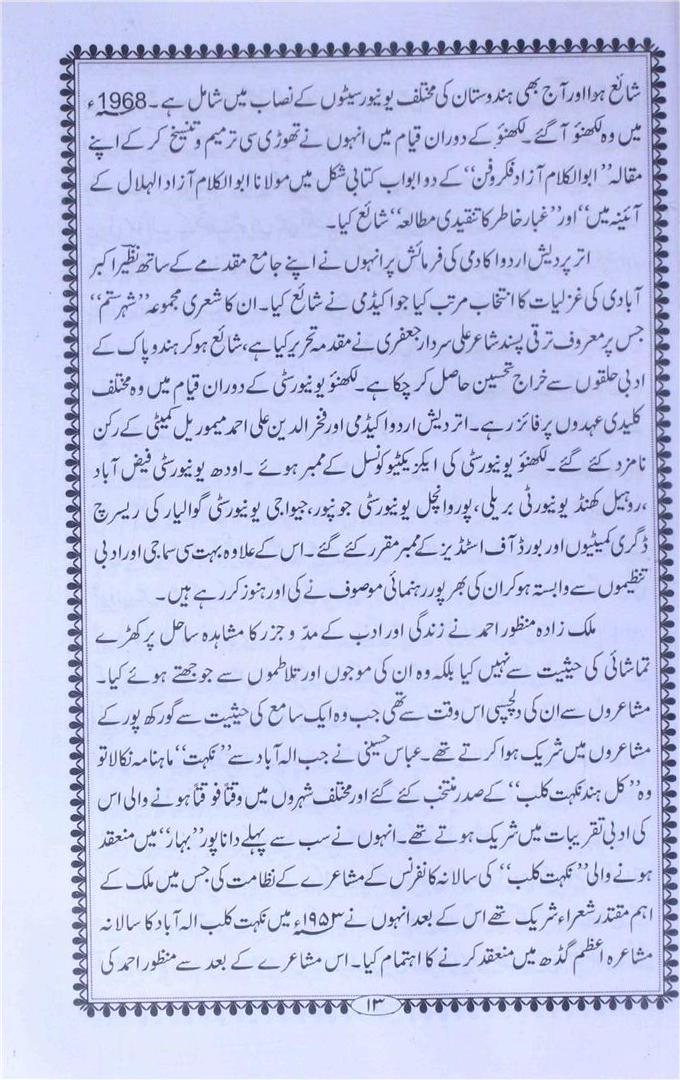 شائع ہوا اور آج بھی ہندوستان کی مختلف یونیورسیٹوں کے نصاب میں شامل ہے۔ 1968ء
میں وہ لکھنؤ آ گئے۔ لکھنؤ کے دوران قیام میں انہوں نے تھوڑی سی ترمیم و تنسیخ کر کے اپنے
مقالہ ”ابوالکلام آزاد فکر و فن“ کے دو ابواب کتابی شکل میں مولانا ابوالکلام آزاد الہلال کے
آئینہ میں“ اور ”غبار خاطر کا تنقیدی مطالعہ“ شائع کیا۔
اتر پردیش اردو اکادمی کی فرمائش پر انہوں نے اپنے جامع مقدمے کے ساتھ نظیر اکبر
آبادی کی غزلیات کا انتخاب مرتب کیا جو اکیڈمی نے شائع کیا۔ ان کا شعری مجموعہ ”شہر ستم“
جس پر معروف ترقی پسند شاعر علی سردار جعفری نے مقدمہ تحریر کیا ہے، شائع ہو کر ہند و پاک کے
ادبی حلقوں سے خراج تحسین حاصل کر چکا ہے۔ لکھنؤ یونیورسٹی کے دوران قیام میں وہ مختلف
کلیدی عہدوں پر فائز رہے۔ اتر دیش اردو اکیڈمی اور فخر الدین علی احمد میموریل کمیٹی کے رکن
نامزد کئے گئے۔ لکھنؤ یونیورسٹی کی ایکزیکٹیو کونسل کے ممبر ہوئے۔ اودھ یونیورسٹی فیض آباد
،روہیل کھنڈ یونیورٹی بریلی، پوروانچل یونیورسٹی جونپور، جیواجی یونیورسٹی گوالیار کی ریسرچ
ڈگری کمیٹیوں اور بورڈ آف اسٹڈیز کے ممبر مقرر کئے گئے۔ اس کے علاوہ بہت سی سماجی اور ادبی
تنظیموں سے وابستہ ہو کر ان کی بھر پور رہنمائی موصوف نے کی اور ہنوز کر رہے ہیں۔
ملک زادہ منظور احمد نے زندگی اور ادب کے مدّ و جزر کا مشاہدہ ساحل پر کھڑے
تماشائی کی حیثیت سے نہیں کیا بلکہ وہ ان کی موجوں اور تلاطموں سے جوجھتے ہوئے کیا۔
مشاعروں سے ان کی دلچسپی اس وقت سے تھی جب وہ ایک سامع کی حیثیت سے گورکھ پور کے
مشاعروں میں شریک ہوا کرتے تھے۔ عباس حسینی نے جب الہ آباد سے ”نکہت“ ماہنامہ نکالا تو
وہ ”کل ہند نکہت کلب“ کے صدر منتخب کئے گئے اور مختلف شہروں میں وقتاً فوقتاً ہونے والی اس
کی ادبی تقریبات میں شریک ہوتے تھے۔ انہوں نے سب سے پہلے دانا پور ”بہار“ میں منعقد
ہونے والی ”نکہت کلب“ کی سالانہ کانفرنس کے مشاعرے کے نظامت کی جس میں ملک کے
اہم مقتدر شعراء شریک تھے اس کے بعد انہوں نے ۱۹۵۳ء میں نکہت کلب الہ آباد کا سالانہ
مشاعرہ اعظم گڈھ میں منعقد کرنے کا اہتمام کیا۔ اس مشاعرے کے بعد سے منظور احمد کی
۱۳